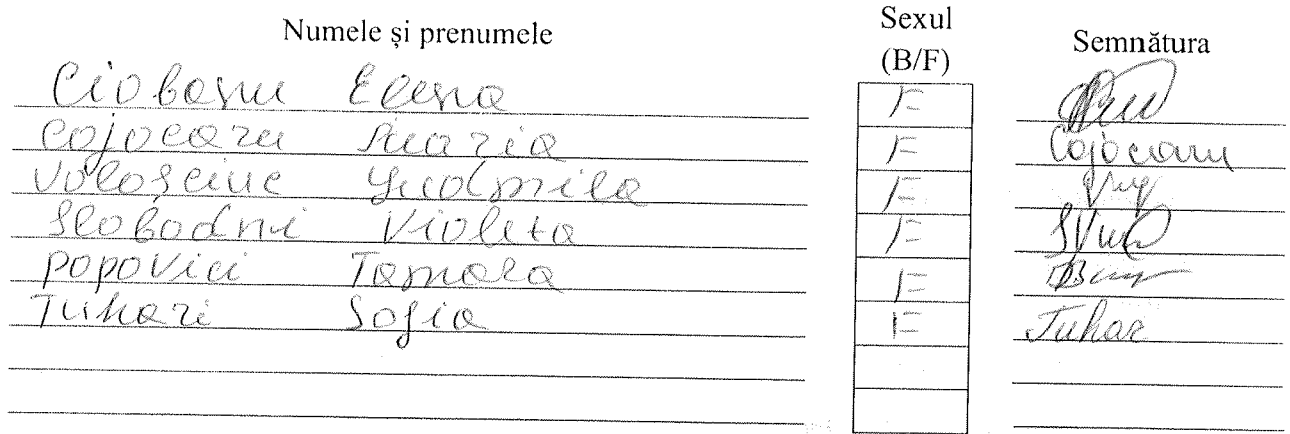 Numele și prenumele Sexul (B/F) Semnătura
Ciobanu Elena F
Cojocaru Maria F Cojocaru
Voloșciuc Liudmila F
Slobodni Violeta F
Popovici Tamara F
Tuhari Sofia F Tuhar